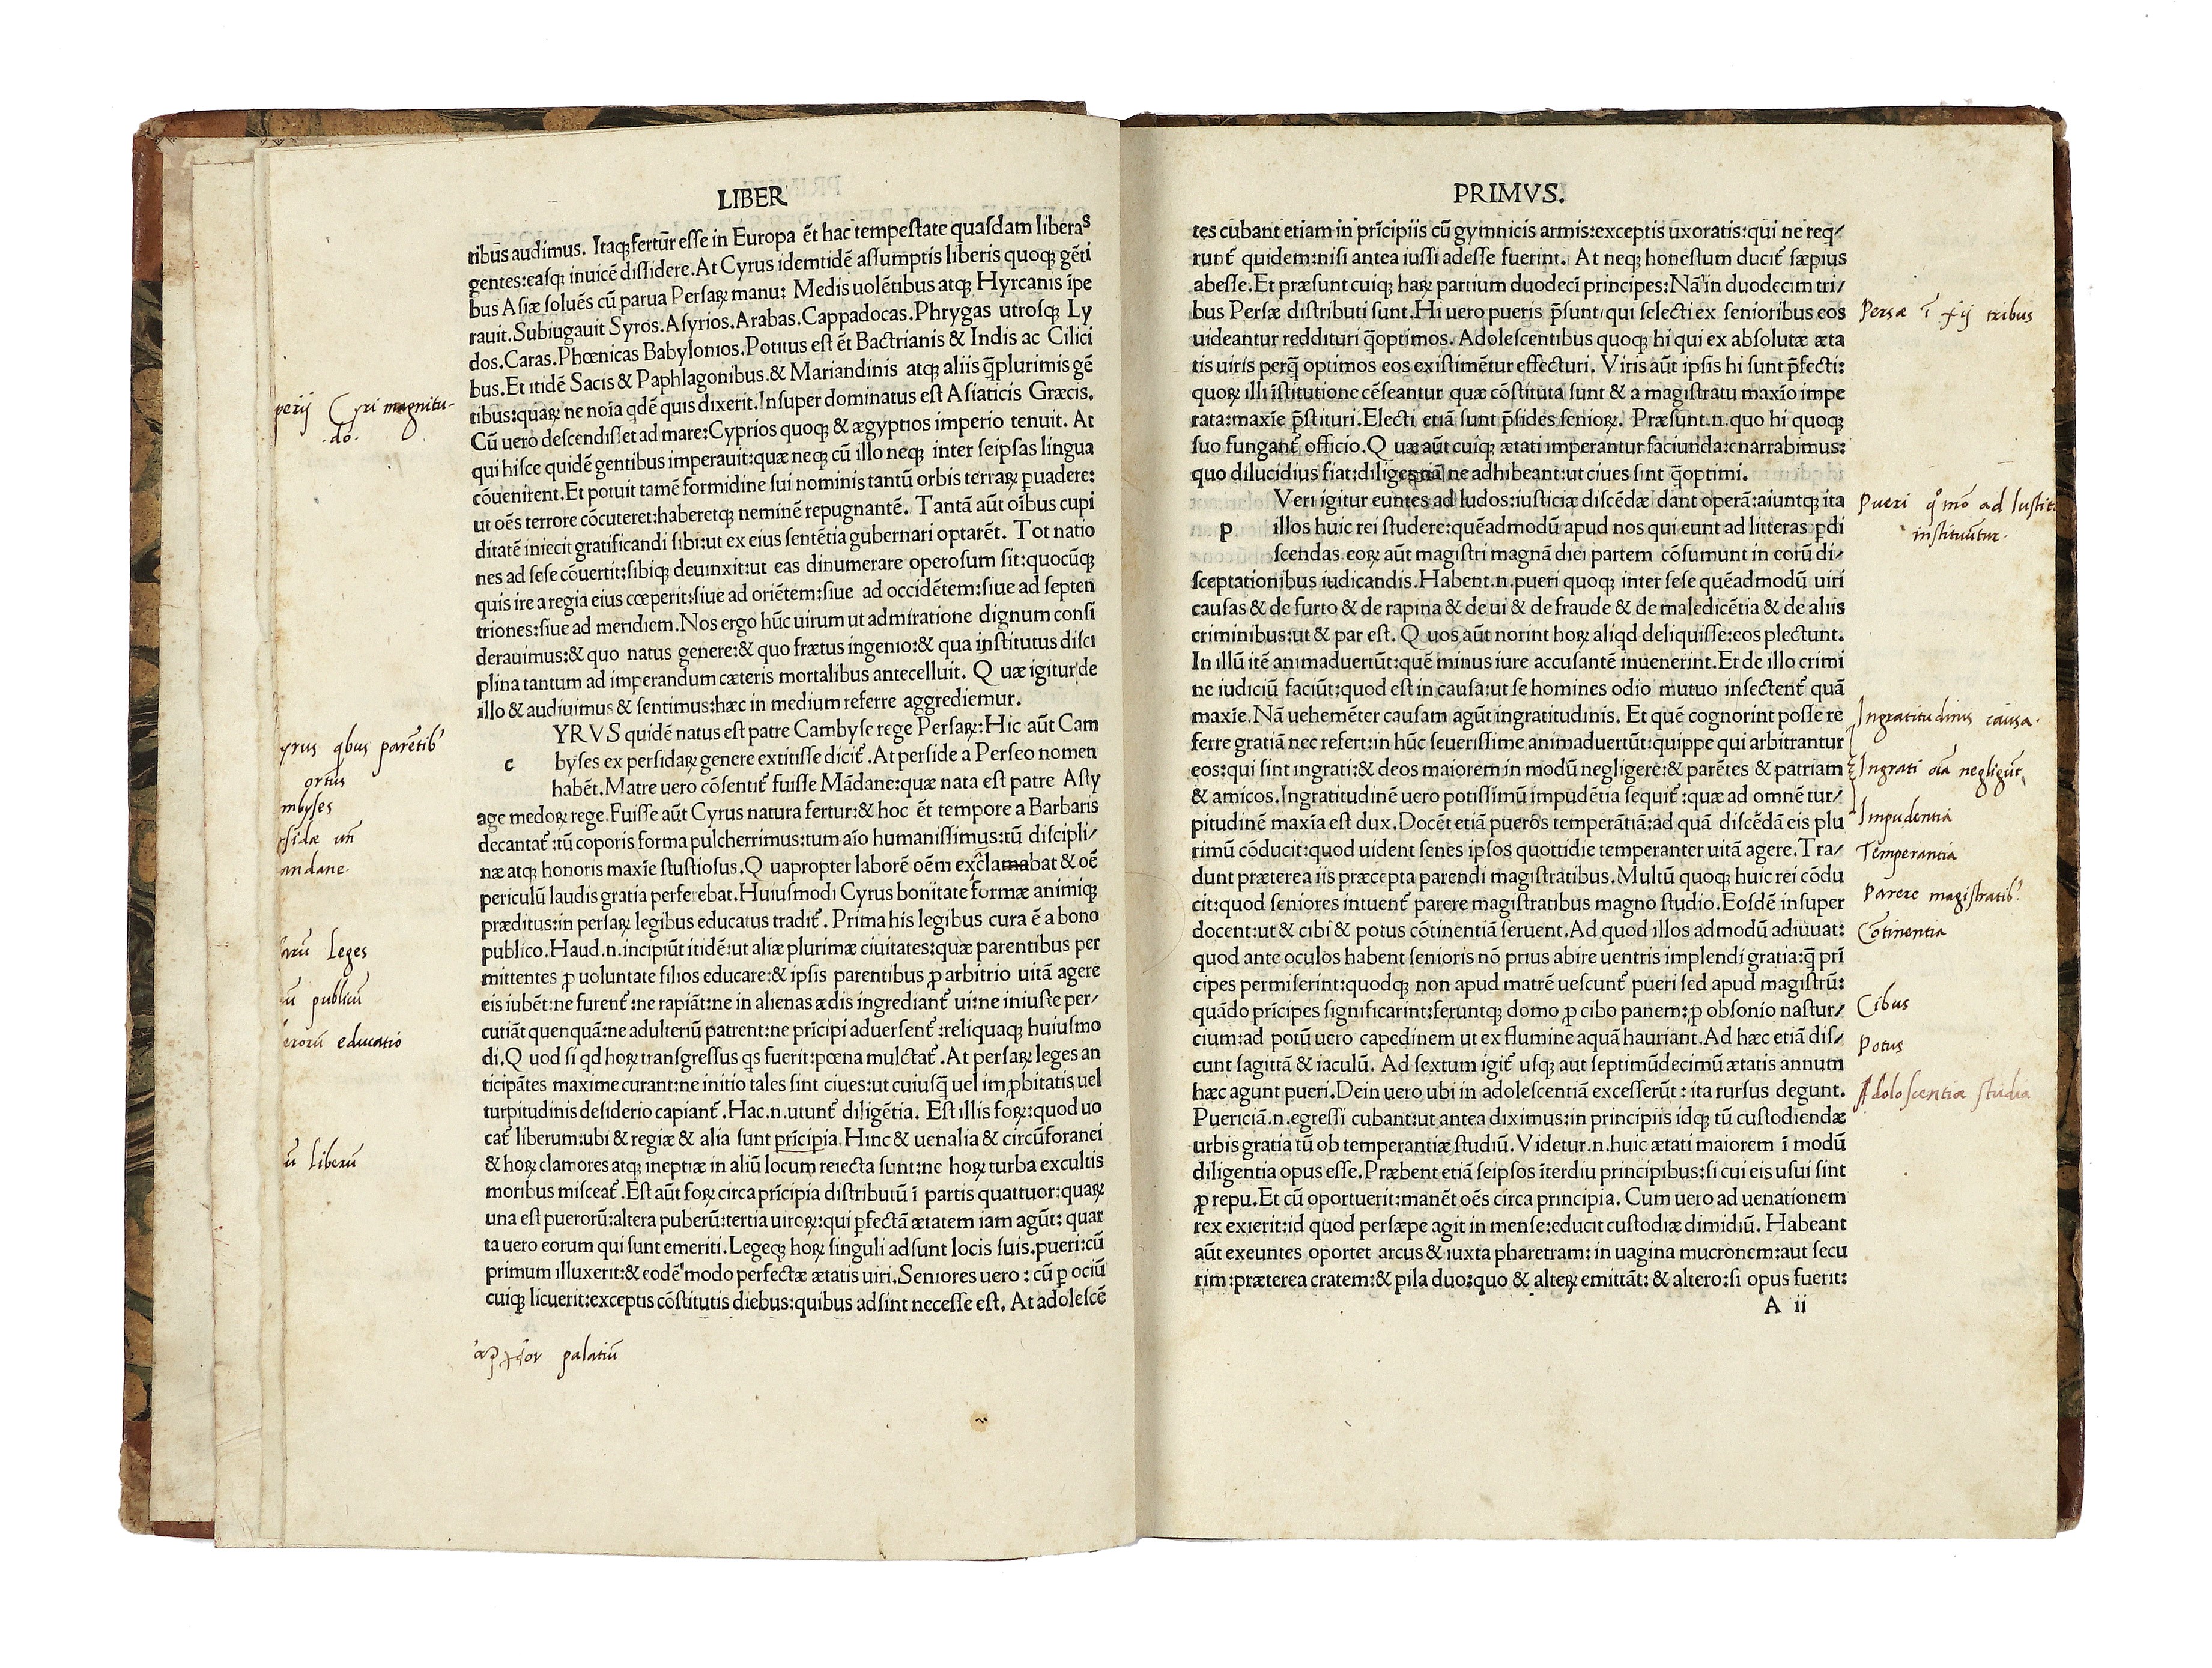 LIBER
tibus audimus. Itaqꝫ fertur̄ esse in Europa ēt hac tempestate quasdam liberas
gentes:easqꝫ inuicē dissidere.At Cyrus idemtidē assumptis liberis quoqꝫ gēti
bus Asiæ soluēs cū parua Persaꝝ manu: Medis uolētibus atqꝫ Hyrcanis īpe
rauit.Subiugauit Syros.Asyrios.Arabas.Cappadocas.Phrygas utrosqꝫ Ly
dos.Caras.Phœnicas Babylonios.Potitus est ēt Bactrianis & Indis ac Cilici
bus.Et itidē Sacis & Paphlagonibus.& Mariandinis atqꝫ aliis q̄plurimis gē
tibus:quaꝝ ne noīa qdē quis dixerit.Insuper dominatus est Asiaticis Græcis.
Cū uero descendisset ad mare:Cyprios quoqꝫ & ægyptios imperio tenuit. At
qui hisce quidē gentibus imperauit:quæ neqꝫ cū illo neqꝫ inter seipsas lingua
cōuenirent.Et potuit tamē formidine sui nominis tantū orbis terraꝝ ꝑuadere:
ut oēs terrore cōcuteret:haberetqꝫ neminē repugnantē. Tantā aūt oībus cupi
ditatē iniecit gratificandi sibi:ut ex eius sentētia gubernari optarēt. Tot natio
nes ad sese cōuertit:sibiqꝫ deuinxit:ut eas dinumerare operosum sit:quocūqꝫ
quis ire a regia eius cœperit:siue ad oriētem:siue ad occidētem:siue ad septen
triones:siue ad meridiem.Nos ergo hūc uirum ut admiratione dignum consi
derauimus:& quo natus genere:& quo frætus ingenio:& qua institutus disci
plina tantum ad imperandum cæteris mortalibus antecelluit. Quæ igitur de
illo & audiuimus & sentimus:hæc in medium referre aggrediemur.
YRVS quidē natus est patre Cambyse rege Persaꝝ: Hic aūt Cam
c byses ex persidaꝝ genere extitisse dicit̄.At perside a Perseo nomen
habēt.Matre uero cōsentit̄ fuisse Mādane:quæ nata est patre Asty
age medoꝝ rege.Fuisse aūt Cyrus natura fertur:& hoc ēt tempore a Barbaris
decantat̄ :tū coporis forma pulcherrimus:tum aīo humanissimus:tū discipli/
næ atqꝫ honoris maxīe stustiosus.Quapropter laborē oēm exclamabat & oē
periculū laudis gratia perferebat.Huiusmodi Cyrus bonitate formæ animiqꝫ
præditus:in persaꝝ legibus educatus tradit̄. Prima his legibus cura ē a bono
publico.Haud.n.incipiūt itidē:ut aliæ plurimæ ciuitates:quæ parentibus per
mittentes ꝓ uoluntate filios educare:& ipsis parentibus ꝓ arbitrio uitā agere
eis iubēt:ne furent̄ :ne rapiāt:ne in alienas ædis ingrediant̄ ui:ne iniuste per/
cutiāt quenquā:ne adulteriū patrent:ne prīcipi aduersent̄ :reliquaqꝫ huiusmo
di.Quod si qd hoꝝ transgressus qs fuerit:pœna mulctat̄. At persaꝝ leges an
ticipātes maxime curant:ne initio tales sint ciues:ut cuiusq̄ uel imꝓbitatis uel
turpitudinis desiderio capiant̄. Hac.n.utunt̄ diligētia. Est illis foꝝ:quod uo
cat̄ liberum:ubi & regiæ & alia sunt prīcipia.Hinc & uenalia & circūforanei
& hoꝝ clamores atqꝫ ineptiæ in aliū locum reiecta sunt:ne hoꝝ turba excultis
moribus misceat̄. Est aūt foꝝ circa prīcipia distributū ī partis quattuor:quaꝝ
una est puerorū:altera puberū:tertia uiroꝝ:qui ꝑfectā ætatem iam agūt: quar
ta uero eorum qui sunt emeriti.Legeqꝫ hoꝝ singuli adsunt locis suis.pueri:cū
primum illuxerit:& eodē modo perfectæ ætatis uiri.Seniores uero : cū ꝑ ociū
cuiqꝫ licuerit:exceptis cōstitutis diebus:quibus adsint necesse est. At adolescē
perij Cyri magnitu-
.do.
yrus qbus parētib'
ortus
mbyses
sidæ un
andane.
arū Leges
ū publicū
erorū educatio
ū liberū
palatiū
PRIMVS.
tes cubant etiam in prīcipiis cū gymnicis armis:exceptis uxoratis:qui ne req/
runt̄ quidem:nisi antea iussi adesse fuerint. At neqꝫ honestum ducit̄ sæpius
abesse.Et præsunt cuiqꝫ haꝝ partium duodecī principes:Nā in duodecim tri/
bus Persæ distributi sunt.Hi uero pueris p̄sunt:qui selecti ex senioribus eos
uideantur reddituri q̄optimos. Adolescentibus quoqꝫ hi qui ex absolutæ æta
tis uiris perq̄ optimos eos existimētur effecturi. Viris aūt ipsis hi sunt p̄fecti:
quoꝝ illi īstitutione cēseantur quæ cōstituta sunt & a magistratu maxīo impe
rata:maxīe p̄stituri.Electi etiā sunt p̄sides senioꝝ. Præsunt.n.quo hi quoqꝫ
suo fungant̄ officio.Quæ aūt cuiqꝫ ætati imperantur faciunda:enarrabimus:
quo dilucidius fiat:diligentiā ne adhibeant:ut ciues sint q̄optimi.
Veri igitur euntes ad ludos:iusticiæ discēdæ dant operā:aiuntqꝫ ita
p illos huic rei studere:quēadmodū apud nos qui eunt ad litteras ꝑdi
scendas.eoꝝ aūt magistri magnā diei partem cōsumunt in eorū di/
sceptationibus iudicandis.Habent.n.pueri quoqꝫ inter sese quēadmodū uiri
causas & de furto & de rapina & de ui & de fraude & de maledicētia & de aliis
criminibus:ut & par est. Quos aūt norint hoꝝ aliqd deliquisse:eos plectunt.
In illū itē animaduertūt:quē minus iure accusantē inuenerint.Et de illo crimi
ne iudiciū faciūt:quod est in causa:ut se homines odio mutuo insectent̄ quā
maxīe.Nā uehemēter causam agūt ingratitudinis. Et quē cognorint posse re
ferre gratiā nec refert:in hūc seuerissime animaduertūt:quippe qui arbitrantur
eos:qui sint ingrati:& deos maiorem in modū negligere:& parētes & patriam
& amicos.Ingratitudinē uero potissimū impudētia sequit̄ :quæ ad omnē tur/
pitudinē maxīa est dux.Docēt etiā pueros temperātiā:ad quā discēdā eis plu
rimū cōducit:quod uident senes ipsos quottidie temperanter uitā agere.Tra/
dunt præterea iis præcepta parendi magistratibus.Multū quoqꝫ huic rei cōdu
cit:quod seniores intuent̄ parere magistratibus magno studio.Eosdē insuper
docent:ut & cibi & potus cōtinentiā seruent.Ad quod illos admodū adiuuat:
quod ante oculos habent senioris nō prius abire uentris implendi gratia:q̄ prī
cipes permiserint:quodqꝫ non apud matrē uescunt̄ pueri sed apud magistrū:
quādo prīcipes significarint:feruntqꝫ domo ꝓ cibo panem:ꝓ obsonio nastur/
cium:ad potū uero capedinem ut ex flumine aquā hauriant.Ad hæc etiā dis/
cunt sagittā & iaculū. Ad sextum igit̄ usqꝫ aut septimūdecimū ætatis annum
hæc agunt pueri.Dein uero ubi in adolescentiā excesserūt : ita rursus degunt.
Puericiā.n.egressi cubant:ut antea diximus:in principiis idqꝫ tū custodiendæ
urbis gratia tū ob temperantiæ studiū.Videtur.n.huic ætati maiorem ī modū
diligentia opus esse.Præbent etiā seipsos īterdiu principibus:si cui eis usui sint
ꝓ repu.Et cū oportuerit:manēt oēs circa principia. Cum uero ad uenationem
rex exierit:id quod persæpe agit in mense:educit custodiæ dimidiū. Habeant
aūt exeuntes oportet arcus & iuxta pharetram: in uagina mucronem:aut secu
rim:præterea cratem:& pila duo:quo & alteꝝ emittāt: & altero:si opus fuerit:
A ii
Persæ ī xij tribus
Pueri qo mō ad Iustit
instituūtur.
Ingratitudinis causa.
Ingrati oīa negligūt
Impudentia
Temperantia
Parere magistratib'
Cōtinentia
Cibus
Potus
Adoloscentiæ studia